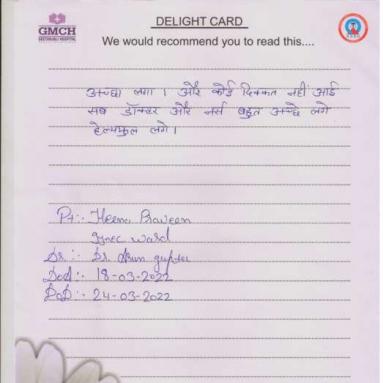 GMCH
GEETANJALI HOSPITAL
DELIGHT CARD
We would recommend you to read this....
अच्छा लगा । और कोई दिक्कत नहीं आई
सब डॉक्टर और नर्स बहुत अच्छे लगे
हेल्पफुल लगे ।
Pt:- Heena Praveen
Gynec ward
Dr:- Dr. Arun gupta
DoA:- 18-03-2022
DoD:- 24-03-2022